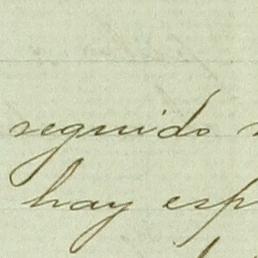 seguido
hay esp